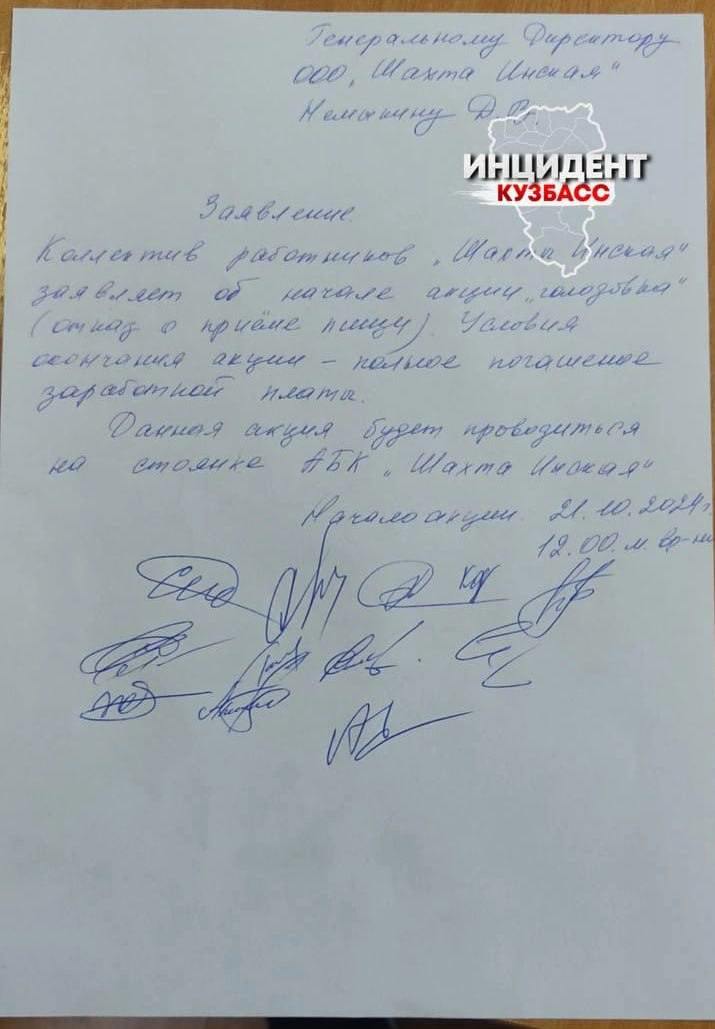 Генеральному Директору
ООО „Шахта Инская“
Немыкину Д.В.
ИНЦИДЕНТ
КУЗБАСС
Заявление.
Коллектив работников „Шахты Инская“
заявляет об начале акции „голодовка“
(отказ о приёме пищи). Условия
окончания акции – полное погашение
заработной платы.
Данная акция будет проводиться
на стоянке АБК „Шахта Инская“
Начало акции. 21.10.2024г.
12.00. м. вр-ни